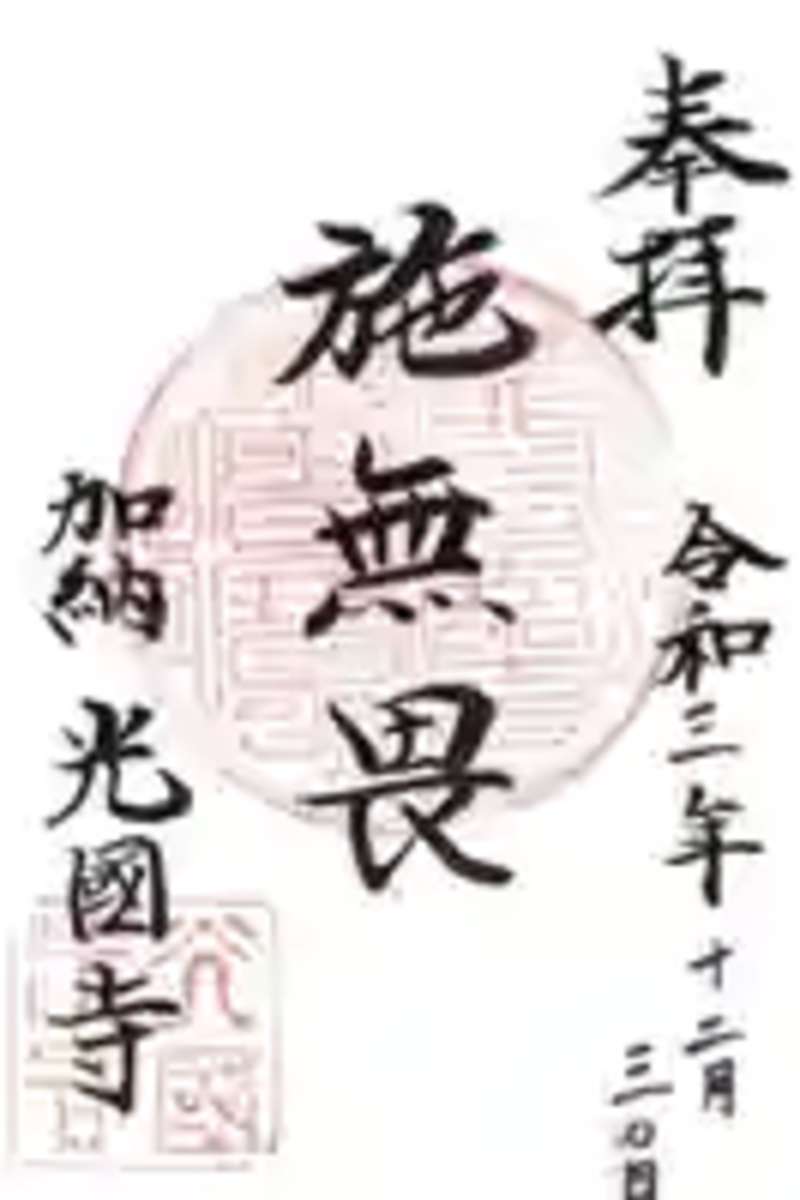 奉拝
令和三年十二月
三〇日
施無畏
加納 光國寺